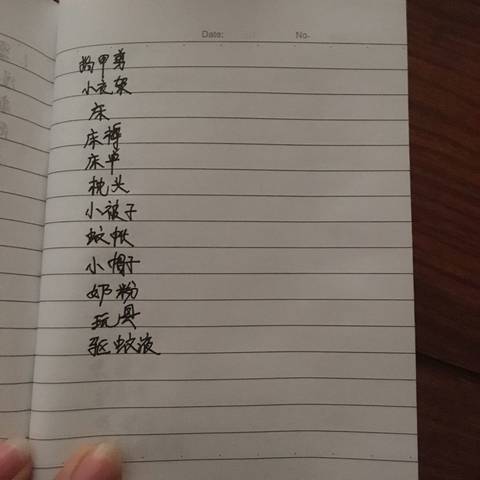 Date:
No-
指甲剪
小衣架
床
床褥
床单
枕头
小被子
蚊帐
小帽子
奶粉
玩具
驱蚊液